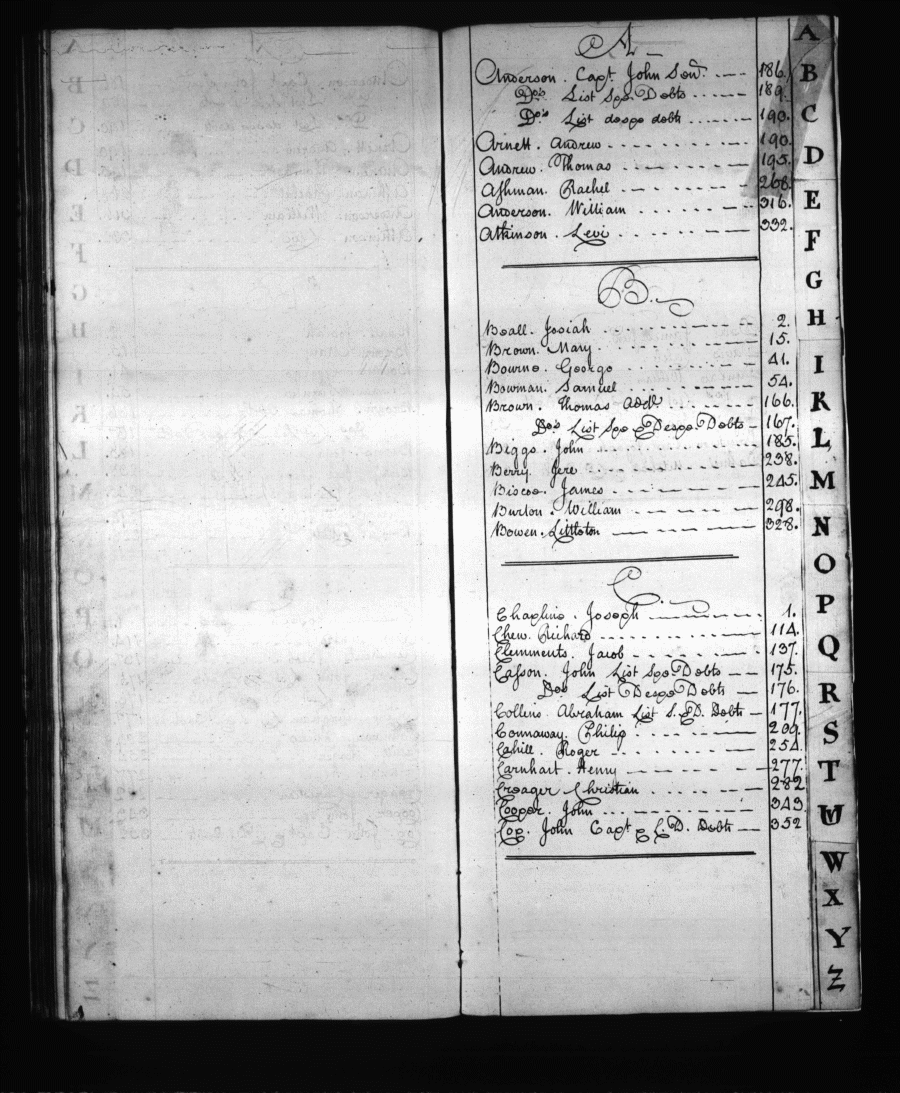 A
Anderson. Capt John Senr. 186.
Dos List Spe Debts 189.
Dos List despe debts 190.
Arnett. Andrew 190.
Andrew. Thomas 195.
Ashman. Rachel 268.
Anderson. William 316.
Atkinson. Levi 332.
B.
Beall. Josiah 2.
Brown. Mary 15.
Bourne. George 41.
Bowman. Samuel 54.
Brown. Thomas Addn. 166.
Dos List Spe & Despe Debts 167.
Biggs. John 185.
Berry. Jere 238.
Biscoe. James 245.
Burton. William 298.
Bowen. Littleton 328.
C.
Chapline. Joseph 1.
Chew. Richard 114.
Clemments. Jacob 137.
Casson. John List Spe Debts 175.
Dos List Despe Debts 176.
Collins. Abraham List S. & D. Debts 177.
Connaway. Philip 209.
Cahill. Roger 254.
Carnhart. Henry 277.
Creager Christian 282
Cooper. John 343.
Cox. John Capt & L. D. Debts 352
A
B
C
D
E
F
G
H
I
K
L
M
N
O
P
Q
R
S
T
W
X
Y
Z